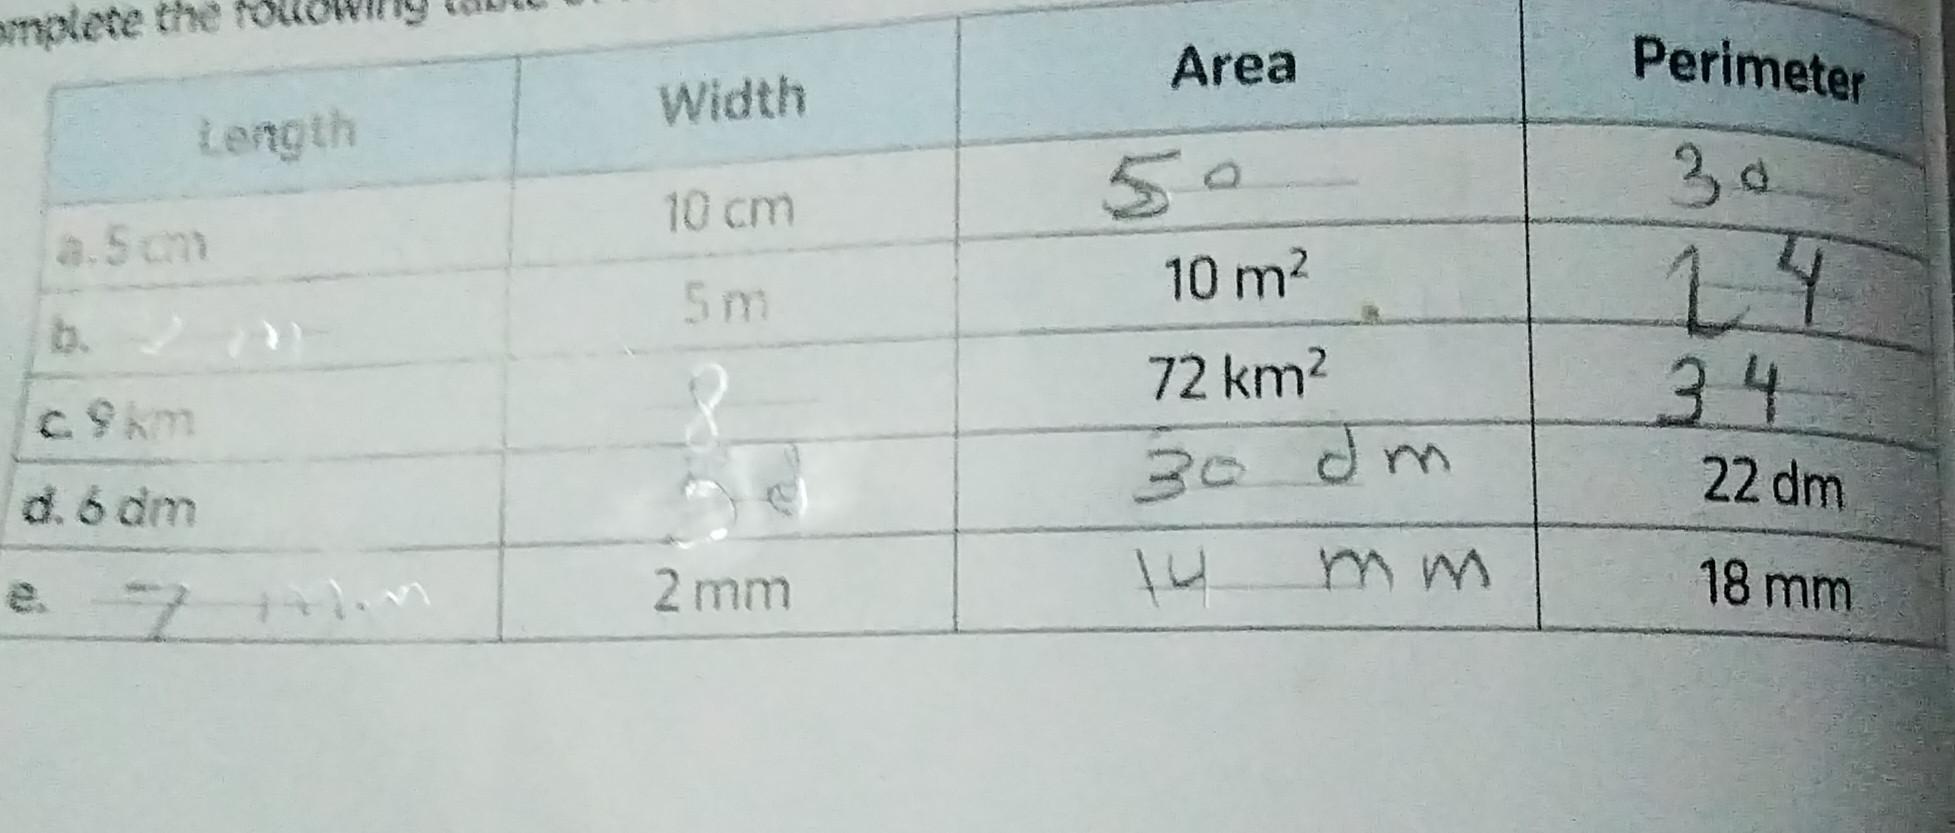 omplete the following table
Length Width Area Perimeter
a. 5 cm 10 cm 50 30
b. 2 m 5 m 10 m² 14
c. 9 km 8 72 km² 34
d. 6 dm 5 d 30 dm 22 dm
e. 7 mm 2 mm 14 mm 18 mm